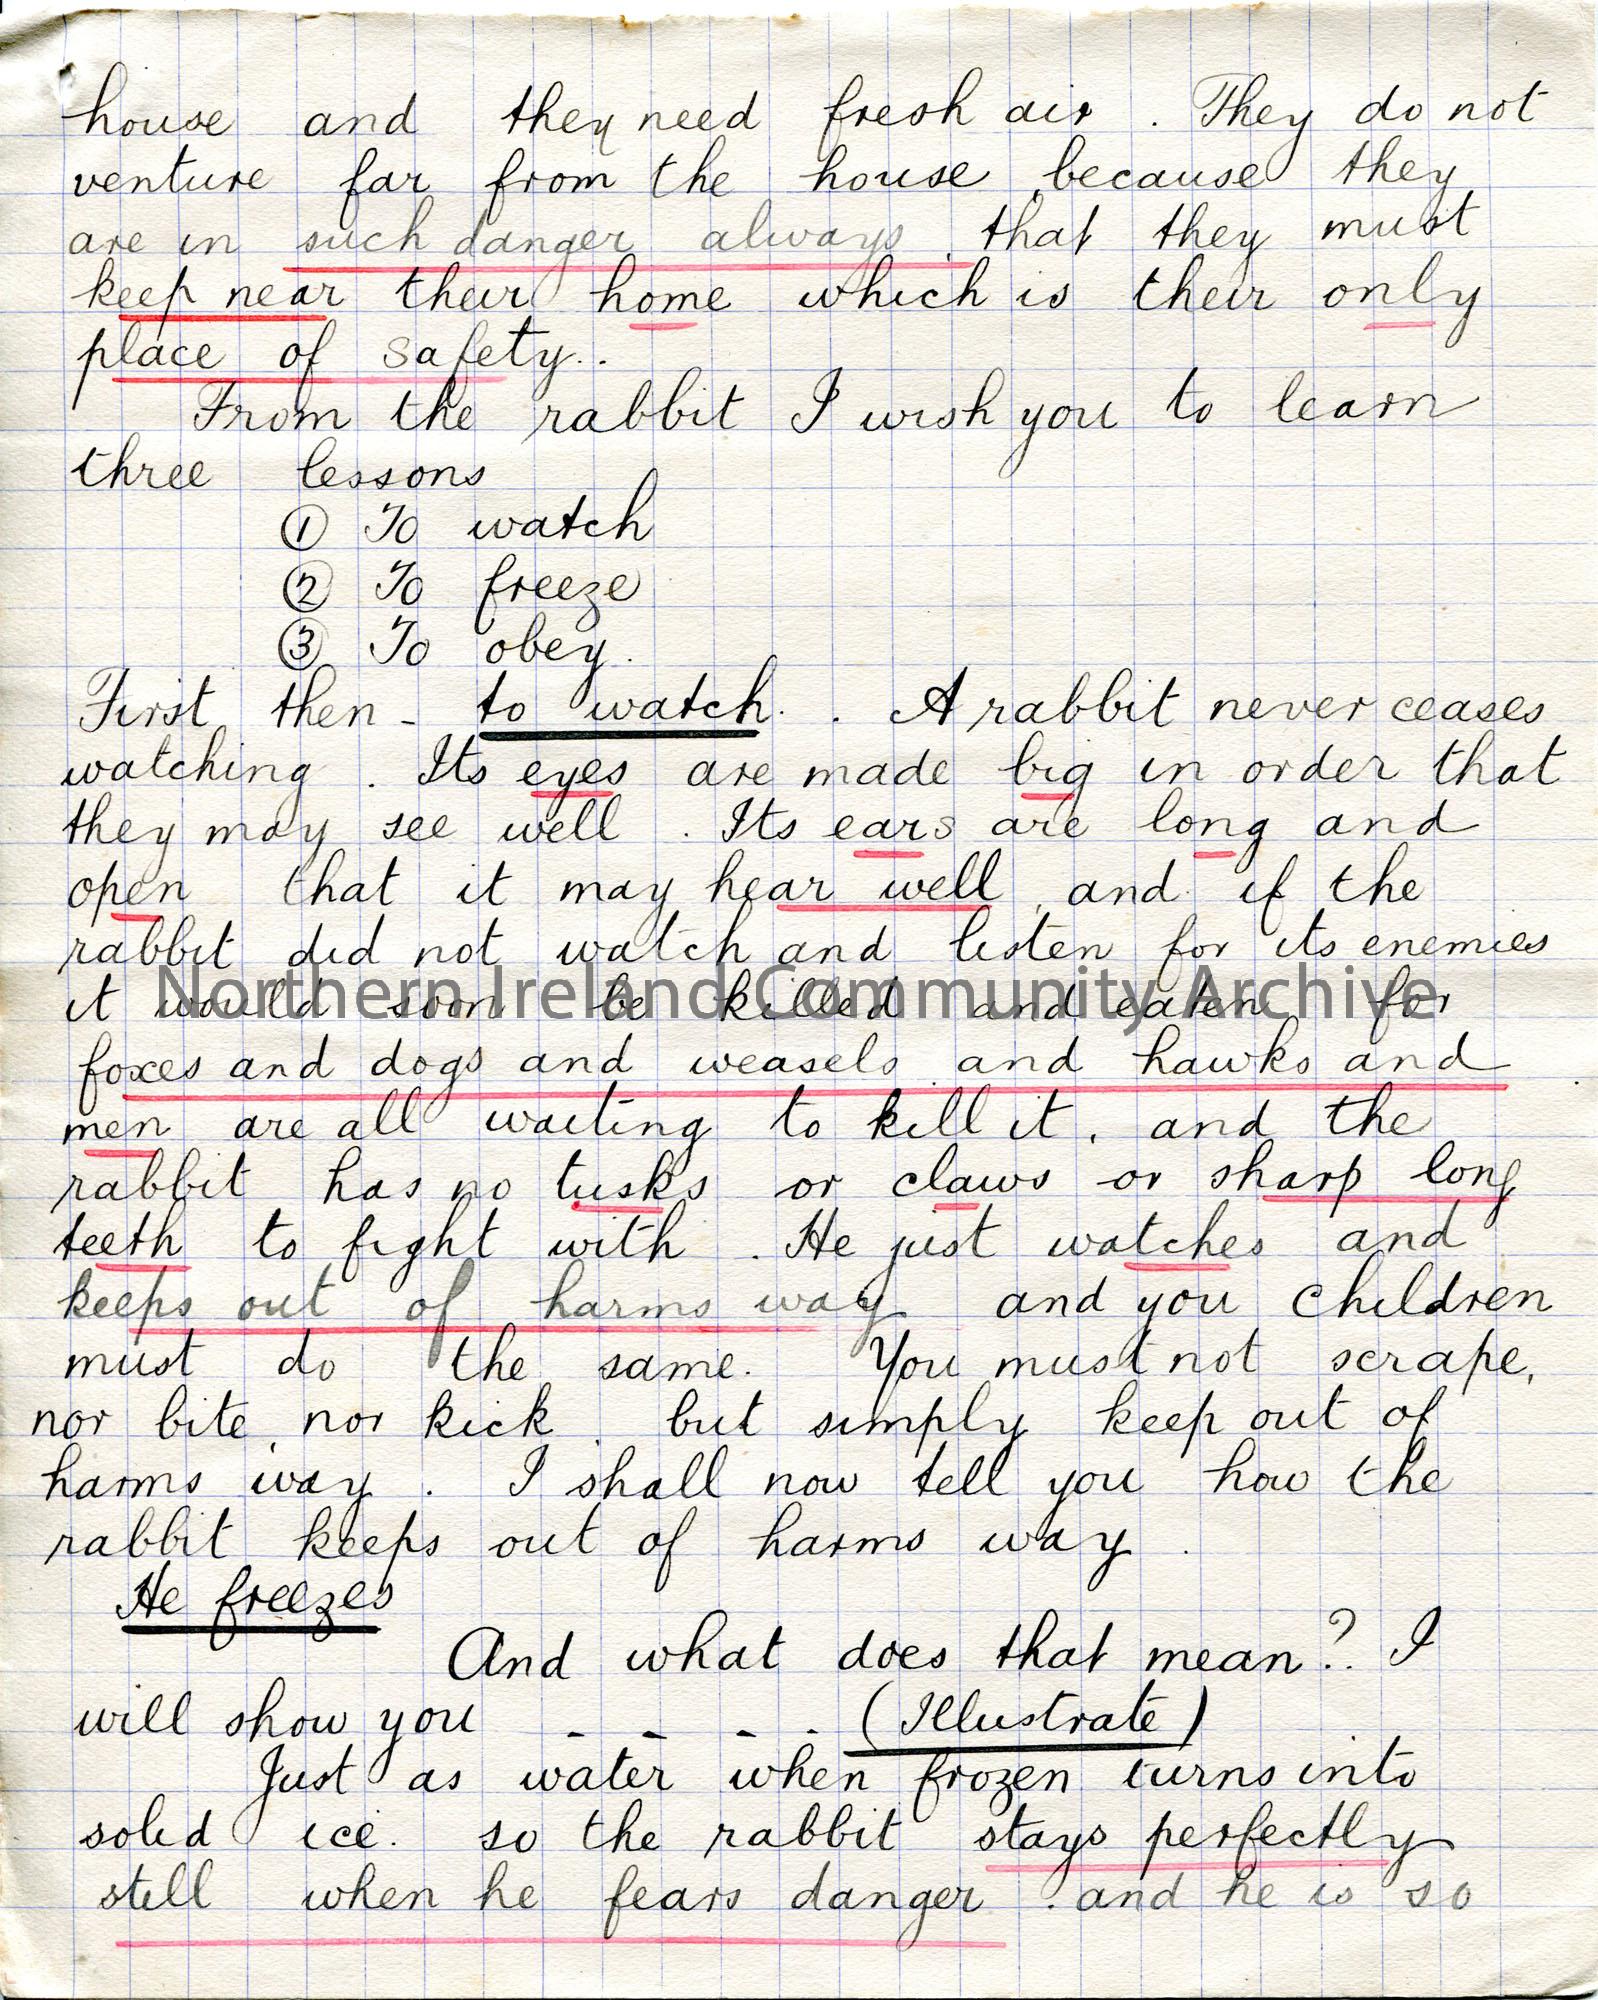 house and they need fresh air. They do not
venture far from the house, because they
are in such danger always, that they must
keep near their home which is their only
place of safety..
From the rabbit I wish you to learn
three lessons
① To watch
② To freeze
③ To obey.
First then - to watch. . A rabbit never ceases
watching. Its eyes are made big in order that
they may see well. Its ears are long and
open that it may hear well, and if the
rabbit did not watch and listen for its enemies
it would soon be killed and eaten for
Northern Ireland Community Archive
foxes and dogs and weasels and hawks and
men are all waiting to kill it, and the
rabbit has no tusks or claws or sharp long
teeth to fight with. He just watches and
keeps out of harms way and you children
must do the same. You must not scrape,
nor bite, nor kick, but simply keep out of
harms way. I shall now tell you how the
rabbit keeps out of harms way.
He freezes
And what does that mean?. I
will show you - - - . (Illustrate)
Just as water when frozen turns into
solid ice. so the rabbit stays perfectly
still when he fears danger. and he is so